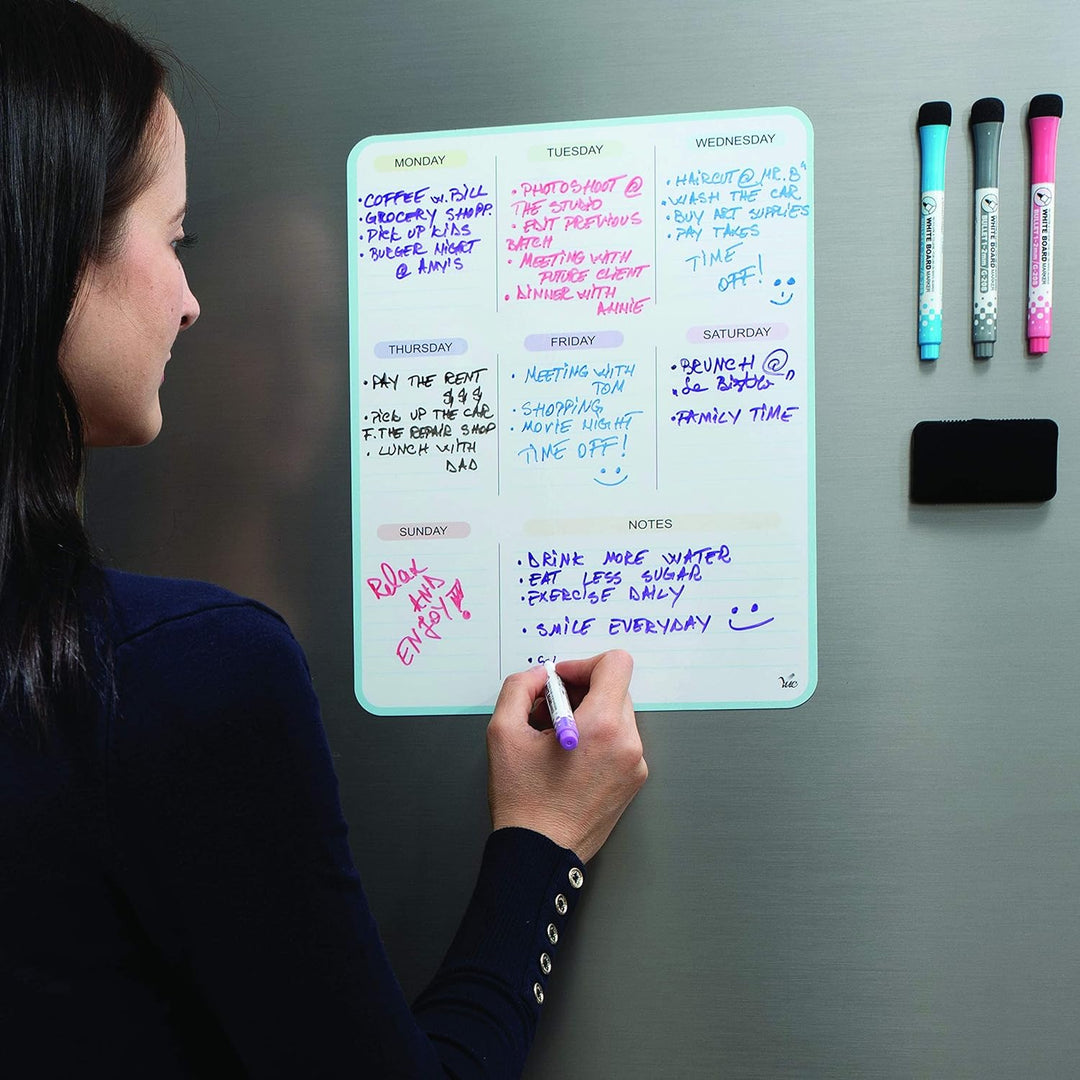 MONDAY
• COFFEE W. BILL
• GROCERY SHOPP.
• PICK UP KIDS
• BURGER NIGHT
@ AMY'S
TUESDAY
• PHOTOSHOOT @
THE STUDIO
• EDIT PREVIOUS
BATCH
• MEETING WITH
FUTURE CLIENT
• DINNER WITH
ANNIE
WEDNESDAY
• HAIRCUT @ MR. B"
• WASH THE CAR
• BUY ART SUPPLIES
• PAY TAXES
TIME
OFF!
THURSDAY
• PAY THE RENT
$ $ $
• PICK UP THE CAR
F. THE REPAIR SHOP
• LUNCH WITH
DAD
FRIDAY
• MEETING WITH
TOM
• SHOPPING
• MOVIE NIGHT
TIME OFF!
SATURDAY
• BRUNCH @
"Le Bistro"
• FAMILY TIME
SUNDAY
Relax
AND
ENJOY!
NOTES
• DRINK MORE WATER
• EAT LESS SUGAR
• EXERCISE DAILY
• SMILE EVERYDAY
WHITE BOARD
MARKER
WHITE BOARD
MARKER
G-208
WHITE BOARD
MARKER